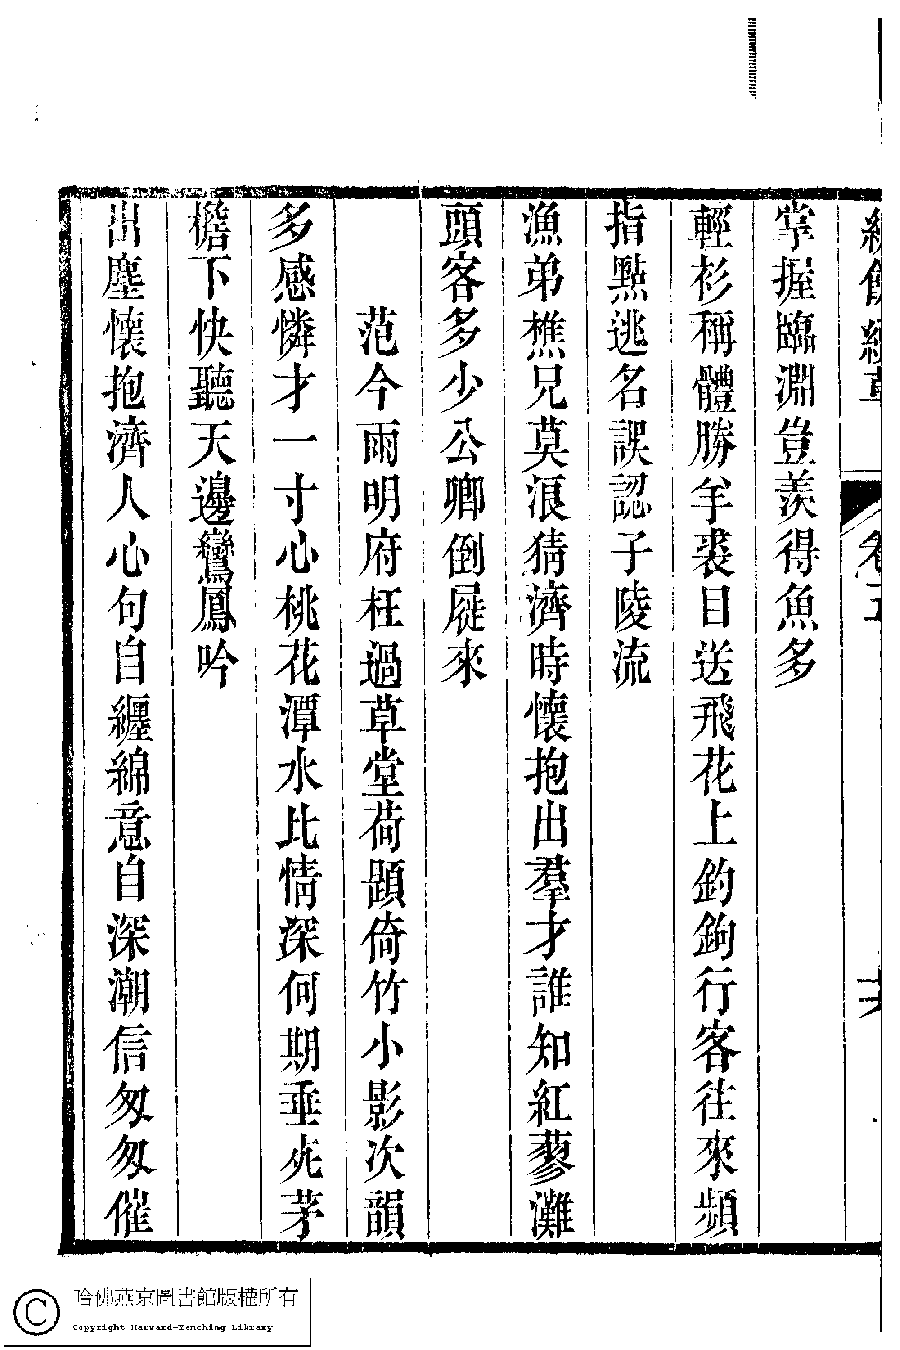 掌握臨淵豈羨得魚多
輕衫稱體勝羊裘目送飛花上釣鉤行客往來頻
指點逃名誤認子陵流
漁弟樵兄莫浪猜濟時懷抱出羣才誰知紅蓼灘
頭客多少公卿倒屣來
范今雨明府枉過草堂荷題倚竹小影次韻
多感憐才一寸心桃花潭水比情深何期垂死茅
檐下快聽天邊鸞鳳吟
出塵懷抱濟人心句自纏綿意自深潮信匆匆催
哈佛燕京圖書館版權所有
Copyright Harvard-Yenching Library